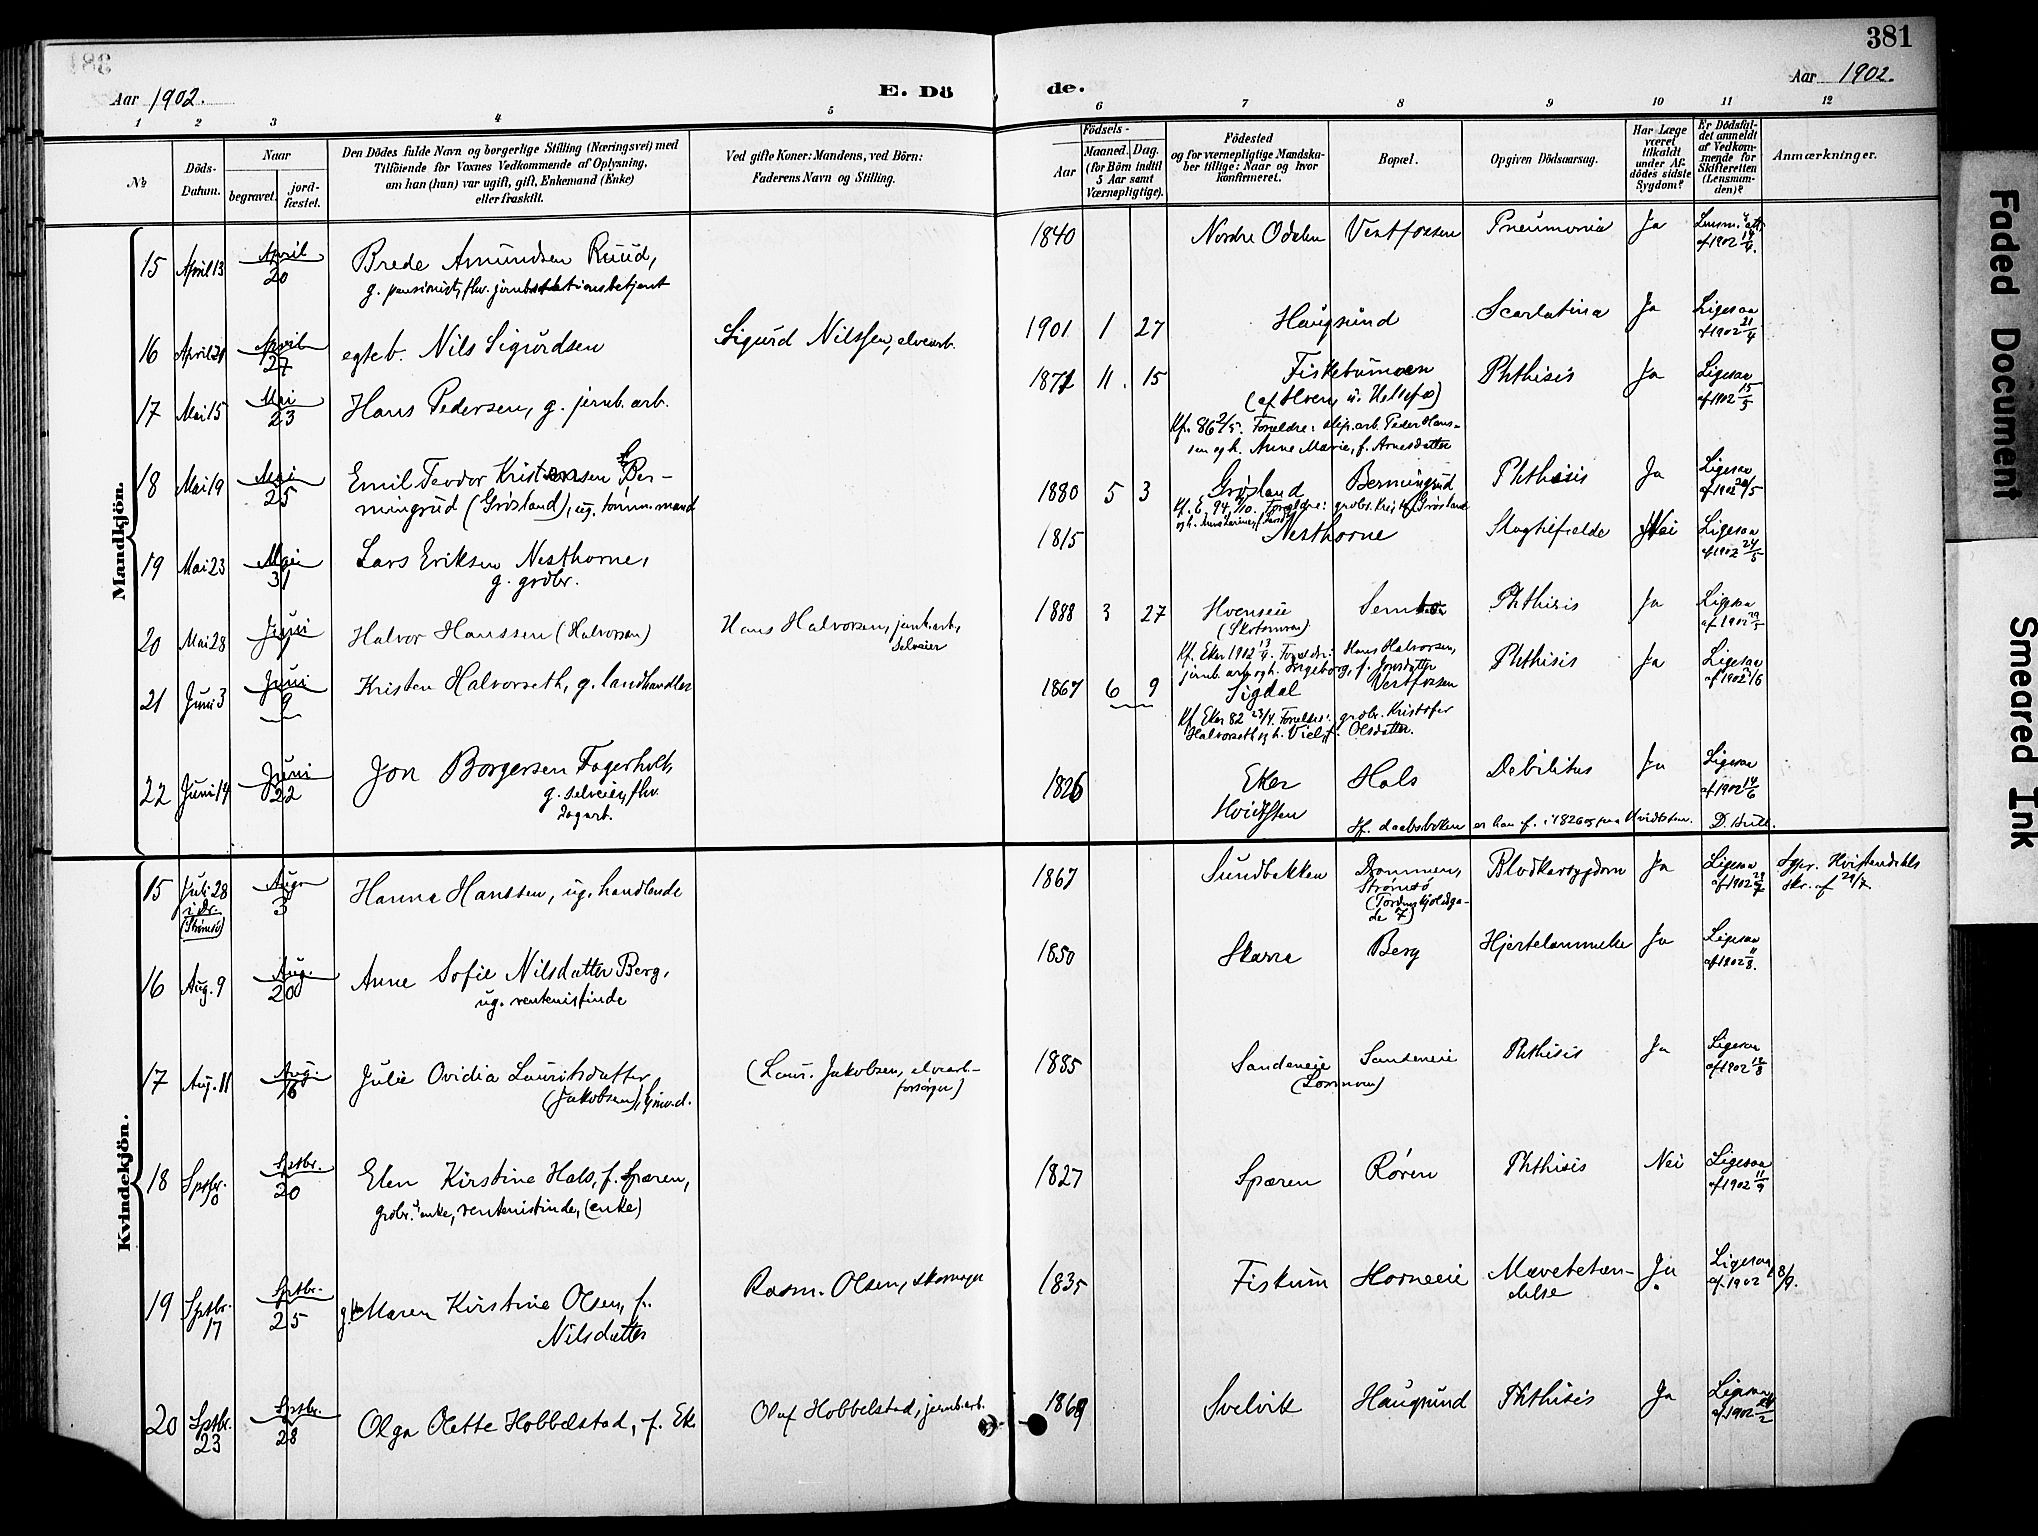 381
Aar 1902.
E. Dö
de.
Aar 1902.
1 2 3 4 5 6 7 8 9 10 11 12
№
Döds-
Datum.
Naar
begravet.
jord-
fæstet.
Den Dödes fulde Navn og borgerlige Stilling (Næringsvei) med
Tilföiende for Voxnes Vedkommende af Oplysning,
om han (hun) var ugift, gift, Enkemand (Enke)
eller fraskilt.
Ved gifte Koner: Mandens, ved Börn:
Faderens Navn og Stilling.
Födsels-
Aar
Maaned. Dag.
(for Börn indtil
5 Aar samt
Værnepligtige).
Födested
og for værnepligtige Mandska-
ber tillige: Naar og hvor
konfirmeret.
Bopæl.
Opgiven Dödsaarsag.
Har Læge
været
tilkaldt
under Af-
dödes sidste
Sygdom?
Er Dödsfal-
det anmeldt
af Vedkom-
mende for
Skifteretten
(Lensman-
den)?
Anmærkninger.
Mandkjön.
15 April 13 April 20 Brede Amundsen Ruud, 1840 Nordre Odalen Vestfossen Pneumonia Ja Lensm.s att. af 1902 14/4.
g. pensionist, fhv. jernb.stationsbetjent
16 April 21 April 27 egteb. Nils Sigurdsen Sigurd Nilssen, elvearb. 1901 1 27 Haugsund Scarlatina Ja Ligesaa af 1902 21/4
17 Mai 15 Mai 23 Hans Pedersen, g. jernb. arb. 1871 11. 15 Fiskebumoen Phthisis Ja Ligesaa af 1902 15/5
(af Hoen u. Hellefos)
Kf. 86 2/5. Forældre: slip.arb. Peder Han-
sen og h. Anne Marie, f. Arnesdatter
18 Mai 19 Mai 25 Emil Teodor Kristensen Ber- 1880 5 3 Grøsland Bermingrud Phthisis Ja Ligesaa af 1902 20/5
mingrud (Grøsland), ug. tømm.mand
19 Mai 23 Mai 31 Lars Eriksen Nesthorne, 1815 Nesthorne Slagtilfælde Nei Ligesaa af 1902 24/5
g. grdbr.
20 Mai 28 Juni 7 Halvor Hanssen (Halvorsen) Hans Halvorsen, jernb.arb., selveier 1888 3 27 Hvenseie Phthisis Ja Ligesaa af 1902 29/5
Kf. Eker 1902 13/4. Foreldr.: Hans Halvorsen,
jernb. arb. og h. Ingeborg, f. Jonsdatter
21 Juni 3 Juni 9 Kristen Halvorseth, g. landhandler 1867 6 9 Sigdal Vestfossen Phthisis Ja Ligesaa af 1902 /6
Kf. Eker 82 23/4. Forældre: grdbr. Kristofer
Halvorseth og h. f. Olsdatter.
22 Juni 14 Juni 22 Jon Borgersen Fagerholt, 1826 Eker Hals Debilitas Ja Ligesaa af 1902 14/6
g. selveier, fhv.
dagarb.
Hvidsten
Sf. daabsboken er han f. i 1826 og paa Hvidsten. D.
Kvindekjön.
15 Juli 28 i Dr. (Strømsø) Aug. 3 Hanna Hanssen, ug. handlende 1867 Sundbakken Drammen, Strømsø (Tordenskjoldsga- de 7) Blodkarsygdom Ja Ligesaa af 1902 29/7 Spr. Hvistendahls skr. af 29/7
16 Aug. 9 Aug. 20 Anne Sofie Nilsdatter Berg, 1850 Skarra Berg Hjertelammelse Ja Ligesaa af 1902 11/8.
ug. rentenistinde
17 Aug. 11 Aug. 16 Julie Ovidia Lauritsdatter (Laur. Jakobsen, elvearb- forsørger) 1885 Sandeneie Sandeneie Phthisis Ja Ligesaa af 1902 12/8
(Jakobsen),
18 Septbr. 8 Septbr. 20 Elen Kirstine Hals, f. Spæren, 1827 Spæren Røren Phthisis Nei Ligesaa af 1902 11/9
grdbr.s enke, rentenistinde, (enke)
19 Septbr. 17 Septbr. 25 Maren Kirstine Olsen, f. Nilsdatter Rasm. Olsen, skomager 1835 Fiskum Horneeie Mavebetæn- delse Ja Ligesaa af 1902 18/9.
20 Septbr. 23 Septbr. 28 Olga Olette Hobbelstad, f. Ek Olaf Hobbelstad, jernb.arb. 1869 Svelvik Haugsund Phthisis Ja Ligesaa af 1902
Faded Document
Smeared Ink